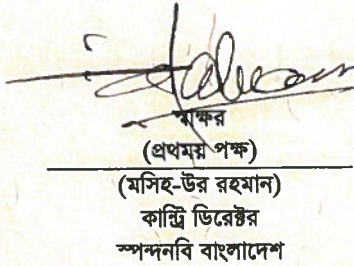 স্বাক্ষর
(প্রথময় পক্ষ)
(মসিহ-উর রহমান)
কান্ট্রি ডিরেক্টর
স্পন্দনবি বাংলাদেশ